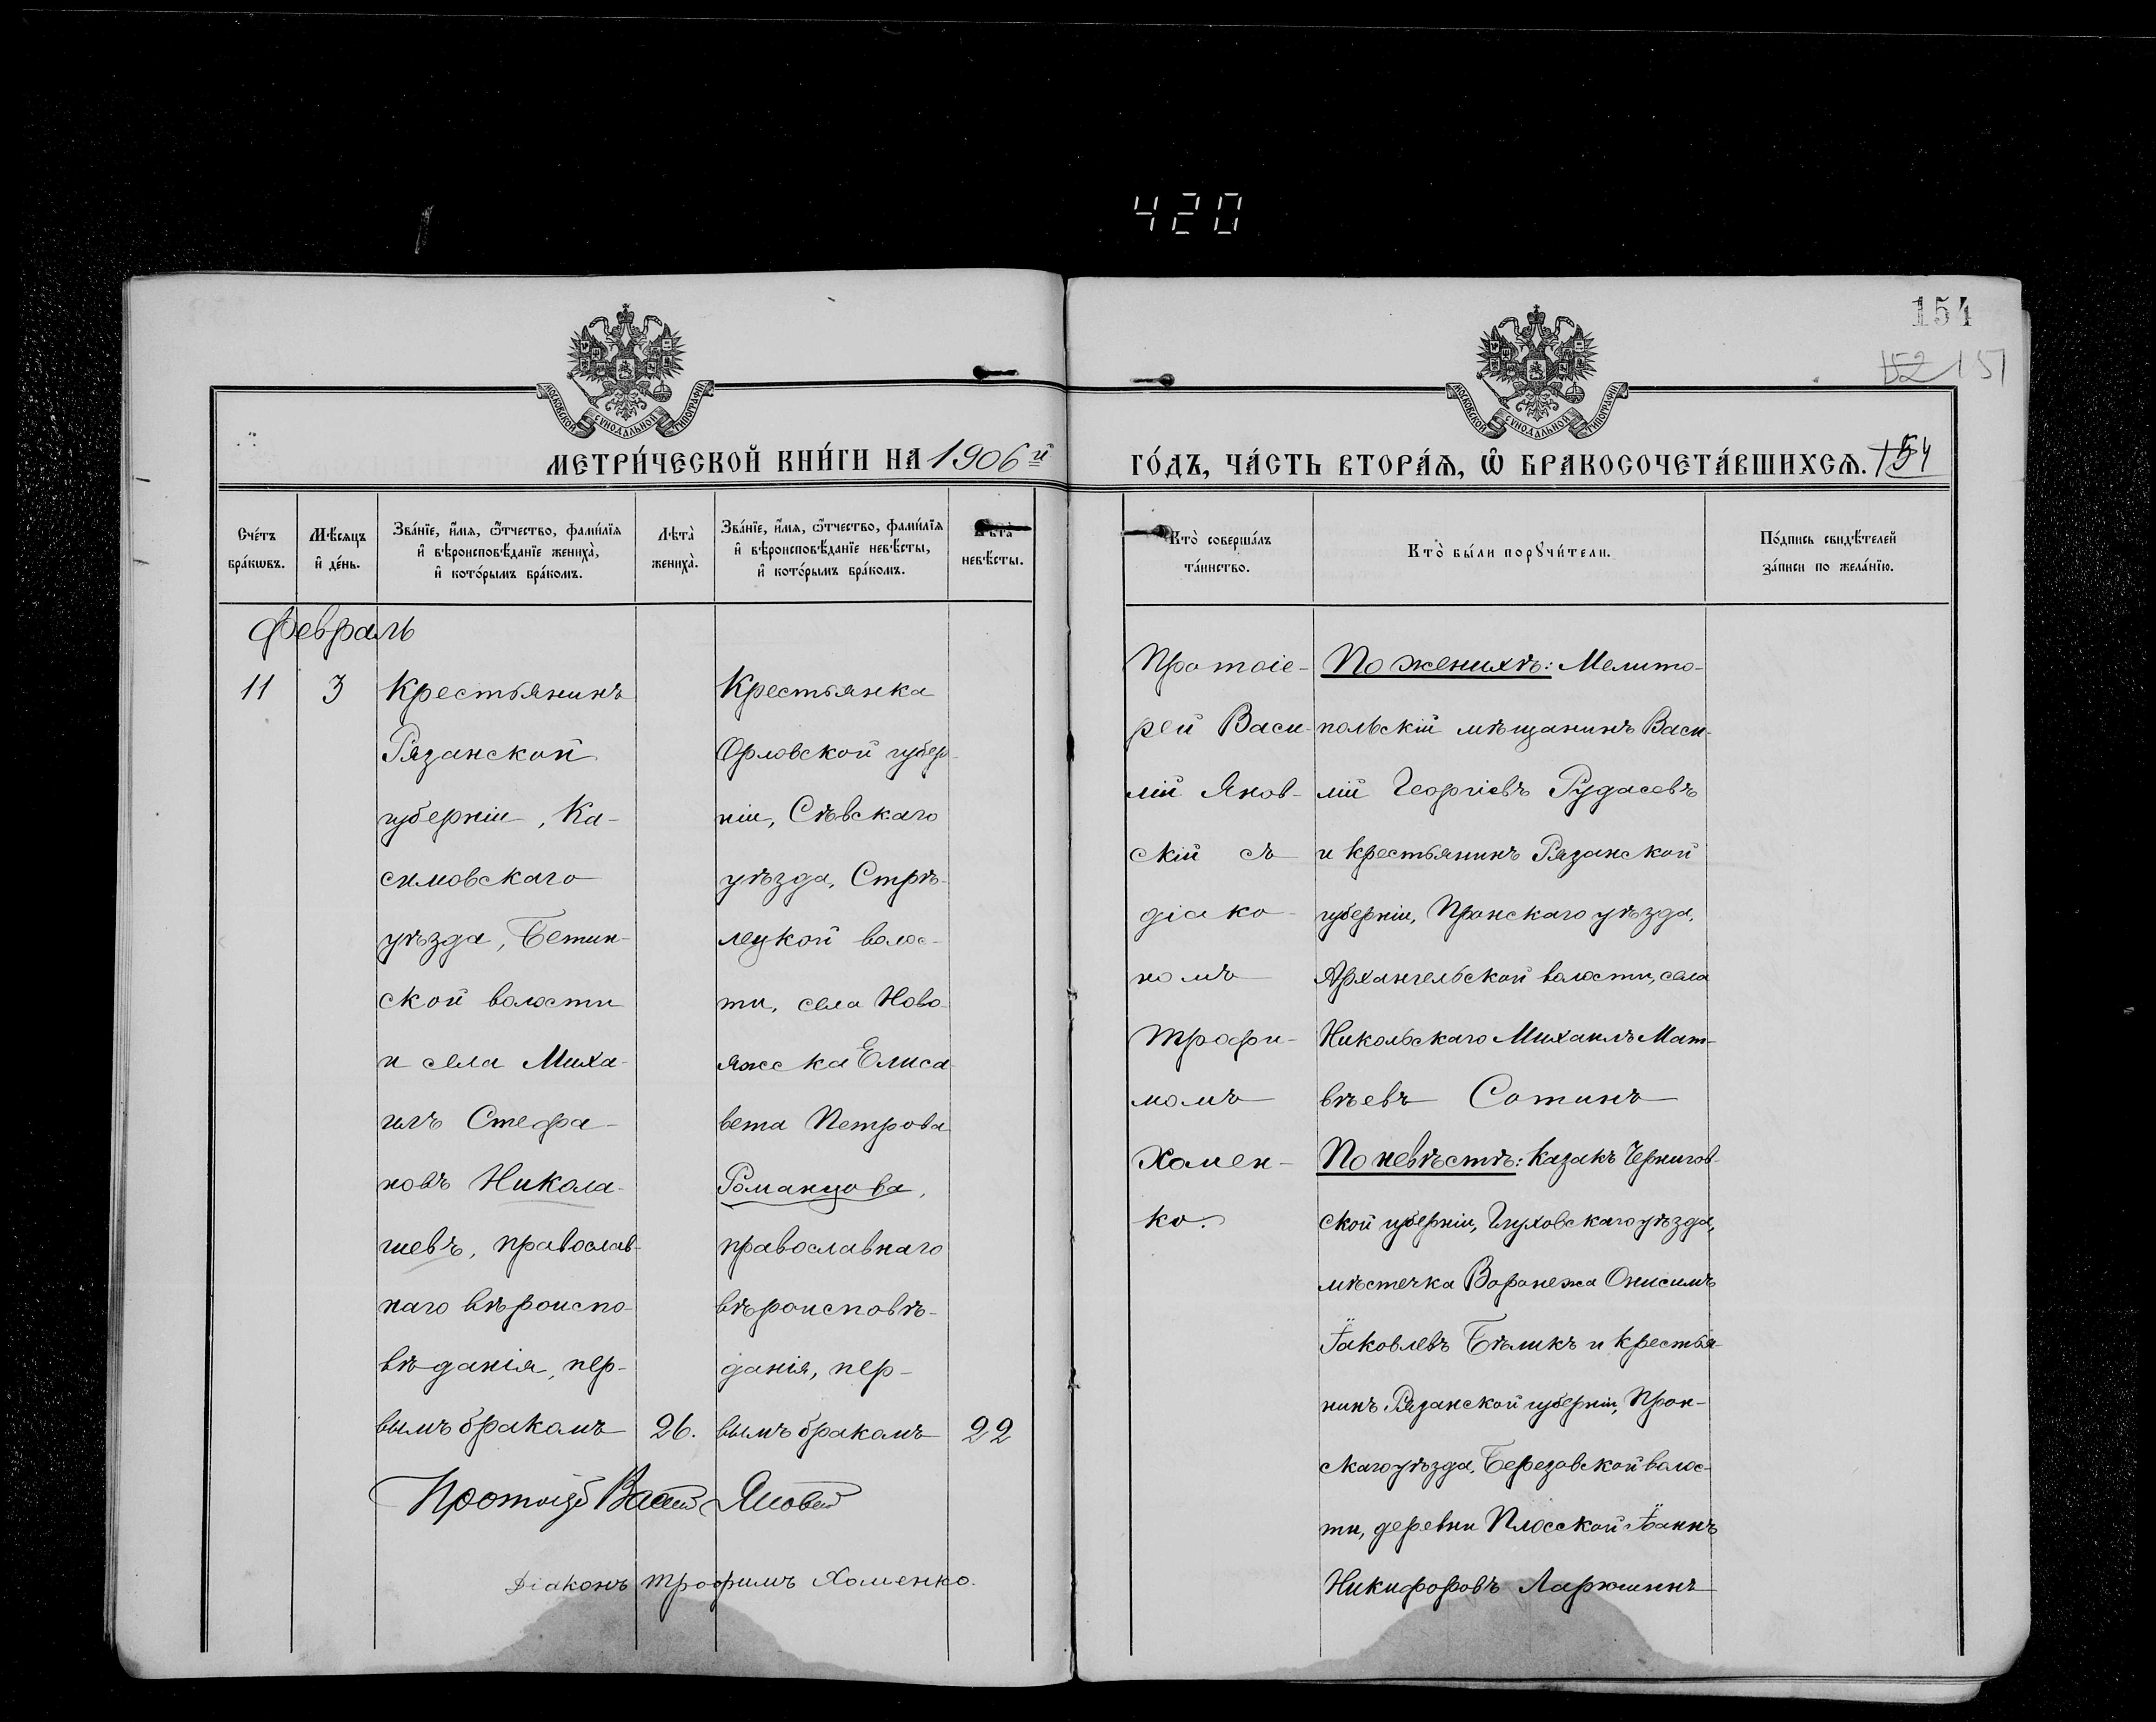 420
154
152 151
МОСКОВСКОЙ СУНОДАЛЬНОЙ ТИПОГРАФІИ
МОСКОВСКОЙ СУНОДАЛЬНОЙ ТИПОГРАФІИ
МЕТРИ́ЧЕСКОЙ КНИ́ГИ НА 1906 й
ГО́ДЪ, ЧА́СТЬ ВТОРА́Я, Ѽ БРАКОСОЧЕТА́ВШИХСЯ. 154
Сче́тъ бра́кωвъ.
Мѣ́сяцъ и҆ де́нь.
Зва́нїе, и҆́мя, ѻ҆́тчество, фами́лїя
и҆ вѣроисповѣ́данїе жениха̀,
и҆ кото́рымъ бра́комъ.
Лѣта̀ жениха̀.
Зва́нїе, и҆́мя, ѻ҆́тчество, фами́лїя
и҆ вѣроисповѣ́данїе невѣ́сты,
и҆ кото́рымъ бра́комъ.
Лѣта̀ невѣ́сты.
Кто̀ соверша́лъ
та́инство.
Кто̀ бы́ли порꙋчи́тели.
По́дпись свидѣ́телей
за́писи по жела́нїю.
Февраль
11
3
Крестьянинъ
Рязанской
губерніи, Ка-
симовскаго
уѣзда, Бетин-
ской волости
и села Миха-
илъ Стефа-
новъ Никола-
шевъ, православ-
наго вѣроиспо-
вѣданія, пер-
вымъ бракомъ
26.
Крестьянка
Орловской губер-
ніи, Сѣвскаго
уѣзда, Стрѣ-
лецкой волос-
ти, села Ново-
ямска Елиса-
вета Петрова
Романцова,
православнаго
вѣроисповѣ-
данія, пер-
вымъ бракомъ
22
Протоіерей Василій Яновскій
Діаконъ Трофимъ Хоменко.
Протоіе-
рей Васи-
лій Янов-
скій съ
діако-
номъ
Трофи-
момъ
Хомен-
ко.
По женихѣ: Мелито-
польскій мѣщанинъ Васи-
лій Георгіевъ Рудасевъ
и крестьянинъ Рязанской
губерніи, Пронскаго уѣзда,
Архангельской волости, села
Никольскаго Михаилъ Мат-
вѣевъ Сотинъ
По невѣстѣ: казакъ Чернигов-
ской губерніи, Глуховскаго уѣзда,
мѣстечка Воронежа Онисимъ
Іаковлевъ Бѣликъ и крестья-
нинъ Рязанской губерніи, Прон-
скаго уѣзда, Березовской волос-
ти, деревни Плосской Іоаннъ
Никифоровъ Ларюшинъ